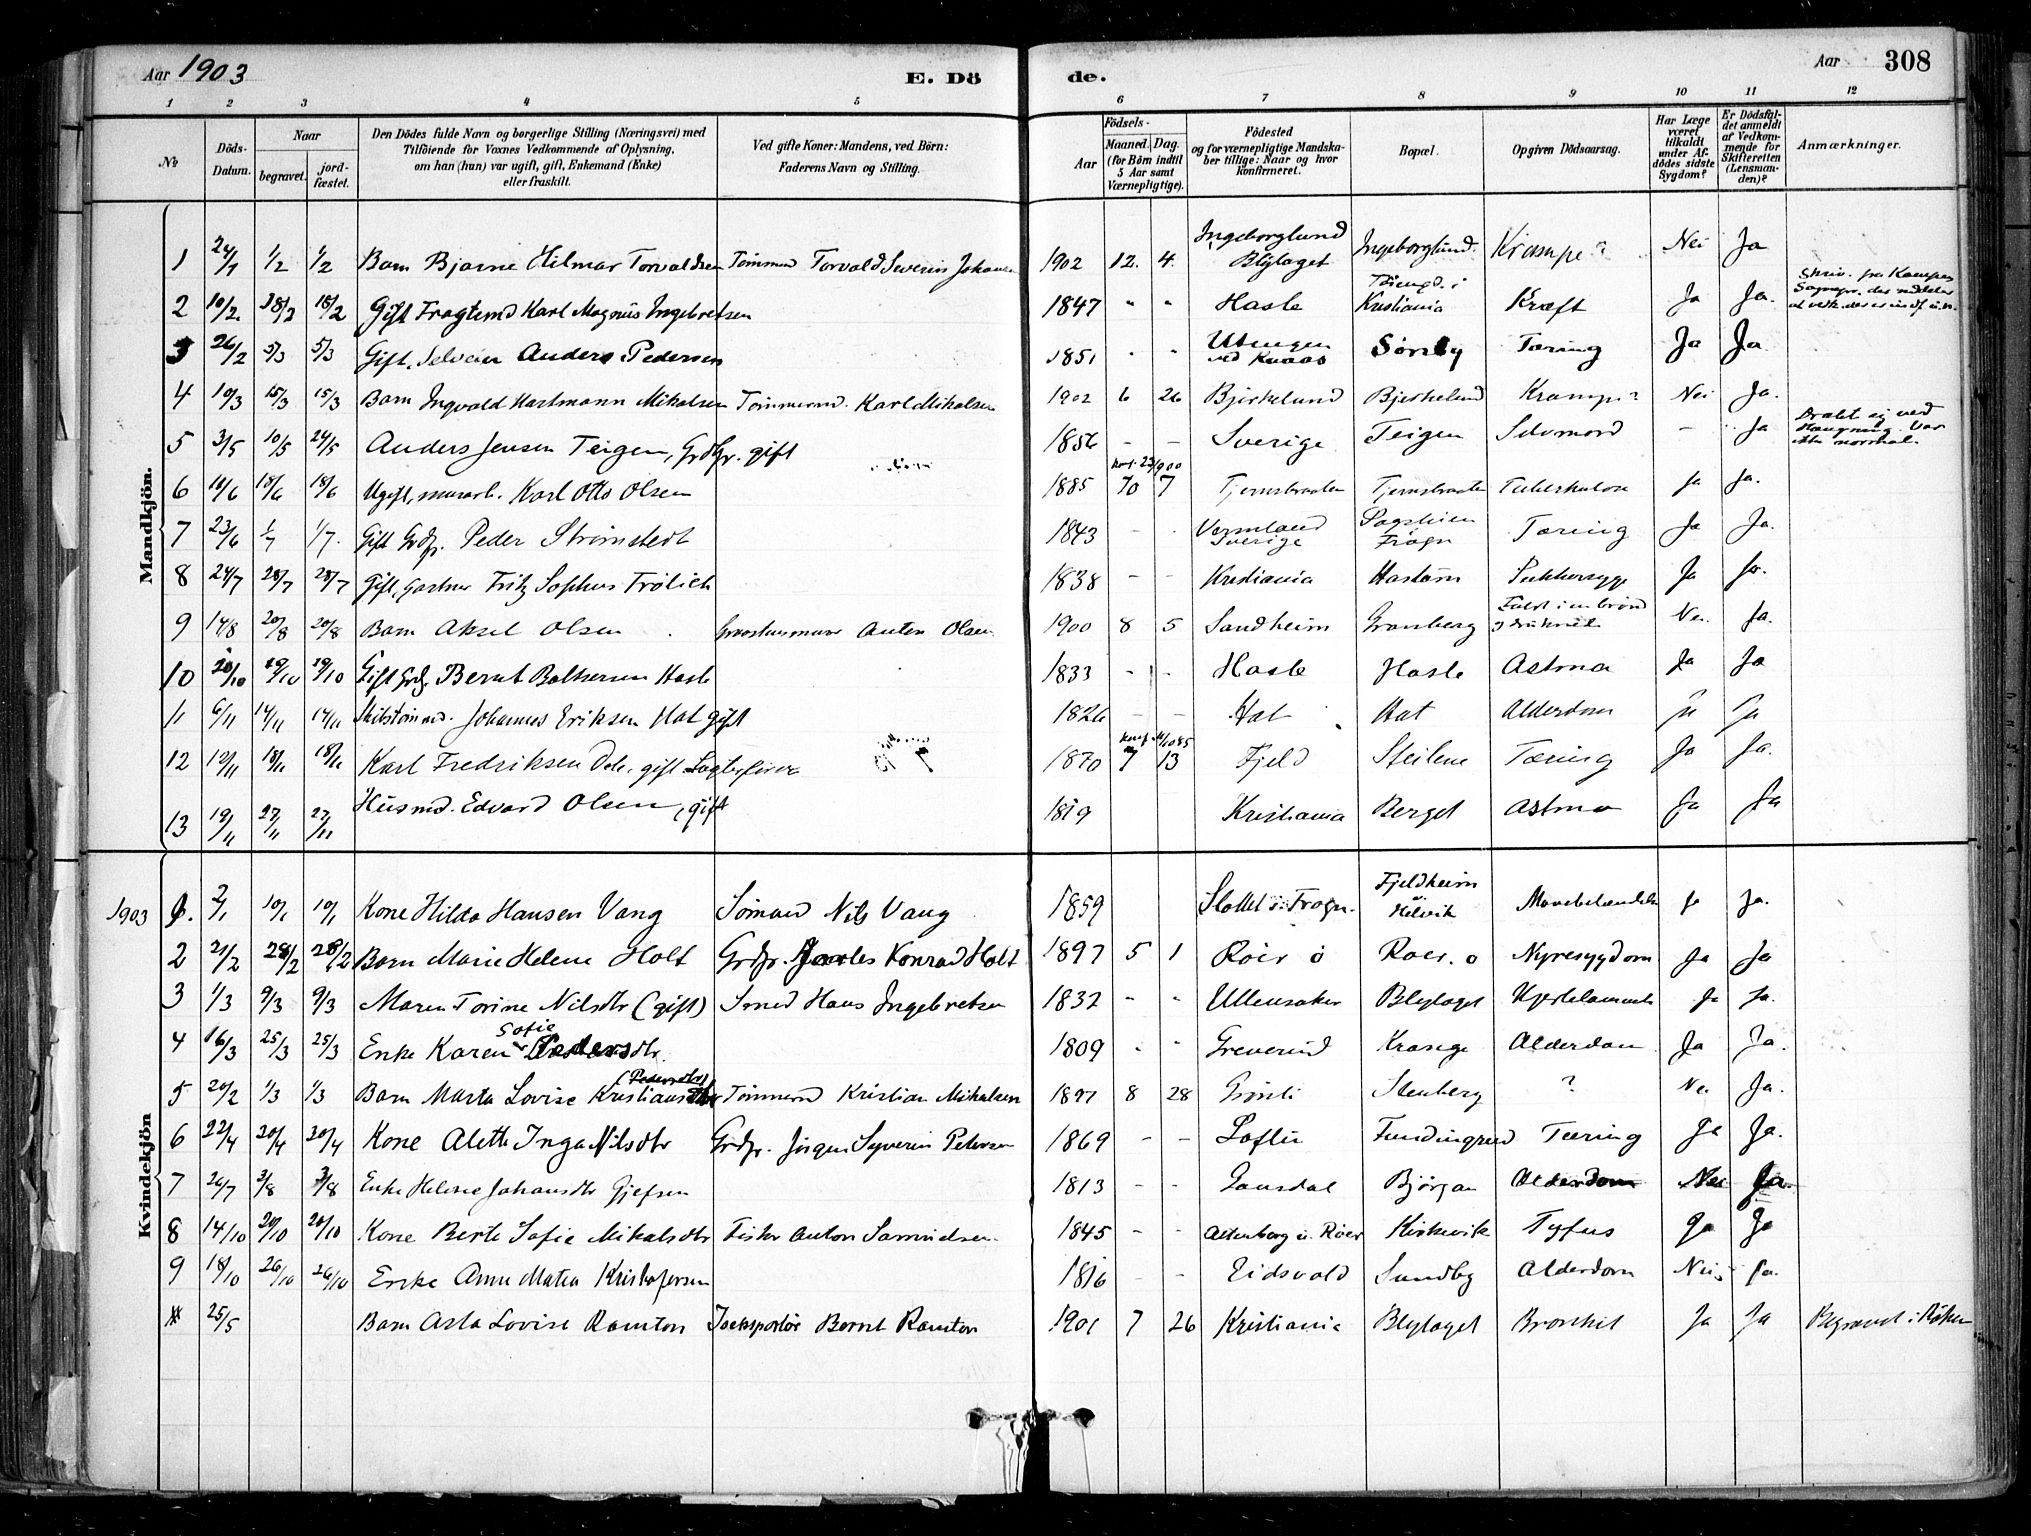 Aar 1903 E. Dö de. Aar 308
1 2 3 4 5 6 7 8 9 10 11 12
No
Döds-Datum.
Naar
begravet.
jord-fæstet.
Den Dödes fulde Navn og borgerlige Stilling (Næringsvei) med
Tilföiende for Voxnes Vedkommende af Oplysning,
om han (hun) var ugift, gift, Enkemand (Enke)
eller fraskilt.
Ved gifte Koner: Mandens, ved Börn:
Faderens Navn og Stilling.
Födsels-
Aar
Maaned. Dag.
(for Börn indtil
5 Aar samt
Værnepligtige).
Födested
og for værnepligtige Mandska-
ber tillige: Naar og hvor
konfirmeret.
Bopæl.
Opgiven Dödsaarsag.
Har Læge
været
tilkaldt
under Af-
dödes sidste
Sygdom?
Er Dödsfal-
det anmeldt
af Vedkom-
mende for
Skifteretten
(Lensman-
den)?
Anmærkninger.
Mandkjön.
1 24/1 1/2 1/2 Barn Bjarne Hilmar Torvaldsen Tömmermd Torvald Severin Johansen 1902 12. 4. Ingeborglund Blylaget Ingeborglund. Krampe? Nei Ja
2 10/2. 18/2 18/2 Gift Fragtemd Karl Magnus Ingebretsen 1847 " " Hasle Töiengd. i Kristiania Kræft Ja Ja.
3 26/2 5/3 5/3 Gift. Selveier Anders Pedersen 1851 " " Utengen ved Knaas Sörby Tæring Ja Ja
4 10/3 15/3 15/3 Barn Ingvald Hartmann Mikalsen Tömmermd. Karl Mikalsen 1902 6 26 Bjerkelund Bjerkelund Krampe? Nei Ja.
5 3/5 10/5 24/5 Anders Jensen Teigen, Grdbr. gift 1856 – – Sverige Teigen Selvmord – Ja Dræbt sig ved Hængning. Var ikke normal.
6 10/6 18/6 18/6 Ugift, murarb. Karl Otto Olsen 1885 10 7 Tjernsbraaten Tjernsbraaten Tuberkulose Ja Ja.
7 23/6 1/7 1/7. Gift Grdbr. Peder Strömstedt 1843 – – Vermland Sverige Frogn Tæring Ja Ja.
8 24/7 28/7 28/7 Gift, gartner Fritz Sophus Frölich 1838 – – Kristiania Sukkersyge Ja Ja.
9 14/8 20/8 20/8 Barn Aksel Olsen Anton Olsen 1900 8 5 Sandheim Granberg Faldt i en brönd og druknet Nei Ja.
10 10/10 19/10 19/10 Gift Grdbr. Bernt Baltsersen Hasle 1833 – – Hasle Hasle Astma Ja Ja
11 6/11 14/11 14/11 Skibstömmd. Johannes Eriksen Hat gift 1826 – – Hat Hat Alderdom Ja Ja
12 12/11 18/11 18/11 Karl Fredriksen gift 1870 7 13 Fjeld Steilene Tæring Ja Ja.
13 19/11 27/11 27/11 Husmd. Edvard Olsen, gift 1819 Kristiania Berget Astma Ja Ja
Kvindekjön
1903 1. 2/1 10/1 10/1 Kone Hilda Hansen Vang Sömand Nils Vang 1859 Slottet i Frogn. Fjeldheim Helvik Mavebetændelse Ja Ja.
2 21/2 28/2 28/2 Barn Marie Helene Holt Grdbr. Konrad Holt 1897 5 1 Röer ö Roer. ö Nyresygdom Ja Ja
3 1/3 9/3 9/3 Maren Torine Nilsdtr (gift) Smed Hans Ingebretsen 1832 " " Ullensaker Blylaget Hjertelammelse Ja Ja.
4 16/3 25/3 25/3 Enke Karen Sofie Pedersdtr. 1809 " " Greverud Krange Alderdom Ja Ja.
5 20/2 1/3 1/3 Barn Marta Lovise Kristiansdtr (Pedersdtr) Tömmermd Kristian Mikalsen 1897 8 28 Grinli Stenberg ? Nei Ja.
6 22/4 20/4 20/4 Kone Alette Inga Nilsdtr Grdbr. Jörgen Syverin Petersen 1869 – – Loftu Fundingrud Tæring Ja Ja.
7 26/7 3/8 3/8 Enke Helene Johansdtr Gjefsen 1813 – – Bjørgan Alderdom Nei Ja.
8 14/10 20/10 20/10 Kone Berte Sofie Mikalsdtr Fisker Anton Samuelsen 1845 – – Altenborg i Röer Kirkevik Tyfus Ja Ja
9 18/10 26/10 26/10 Enke Anne Matea Kristofersen 1816 – – Eidsvold Sundby Alderdom Nei Ja.
25/5 Barn Asta Lovise Ramton Bernt Ramton 1901 7 26 Kristiania Blylaget Bronkit Ja Ja Begravet i Röken